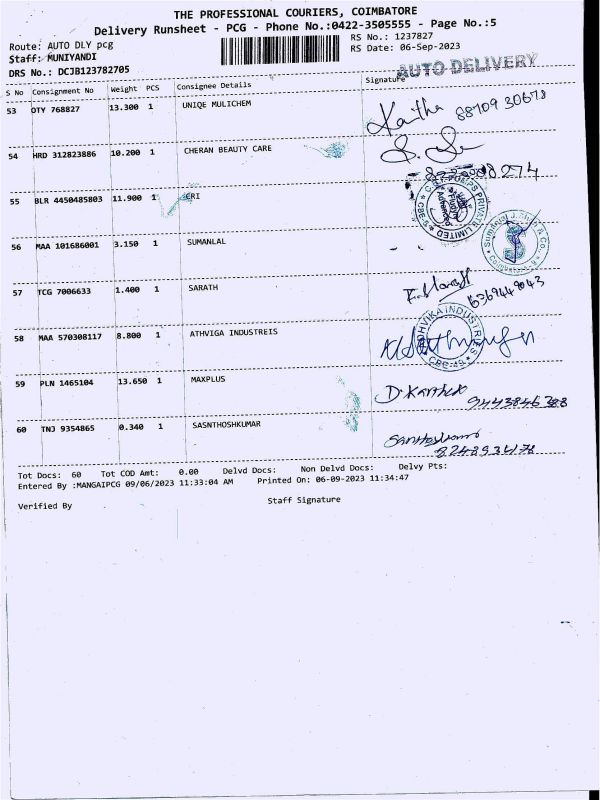 THE PROFESSIONAL COURIERS, COIMBATORE
Delivery Runsheet - PCG - Phone No.:0422-3505555 - Page No.:5
Route: AUTO DLY pcg RS No.: 1237827
Staff: MUNIYANDI RS Date: 06-Sep-2023
DRS No.: DCJB123782705 AUTO DELIVERY
S No Consignment No Weight PCS Consignee Details Signature
53 OTY 768827 13.300 1 UNIQE MULICHEM
54 HRD 312823886 10.200 1 CHERAN BEAUTY CARE
55 BLR 4450485803 11.900 1 CRI
56 MAA 101686001 3.150 1 SUMANLAL
57 TCG 7006633 1.400 1 SARATH
58 MAA 570308117 8.800 1 ATHVIGA INDUSTREIS
59 PLN 1465104 13.650 1 MAXPLUS D. Karthik
9443846388
60 TNJ 9354865 0.340 1 SASNTHOSHKUMAR
8248934178
Tot Docs: 60 Tot COD Amt: 0.00 Delvd Docs: Non Delvd Docs: Delvy Pts:
Entered By :MANGAIPCG 09/06/2023 11:33:04 AM Printed On: 06-09-2023 11:34:47
Verified By Staff Signature